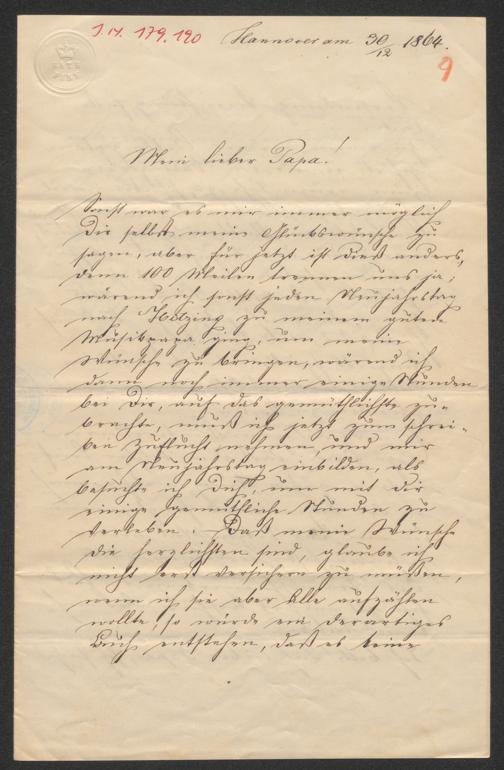 I.N. 179.120
Hannover am 30/12 1864.
9
BATH
Mein lieber Papa!
Sonst war es mir immer möglich
Dir selbst meine Glückswünsche zu
sagen, aber für jetzt ist dieß anders,
denn 100 Meilen trennen uns ja;
wärend ich sonst jeden Neujahrstag
nach Hietzing zu meinem guten
Musikpapa ging um meine
Wünsche zu bringen, wärend ich
dann noch immer einige Stunden
bei Dir, auf das gemüthlichste zu-
brachte, muß ich jetzt zum schrei-
ben Zuflucht nehmen, und mir
am Neujahrstag einbilden, als
besuchte ich Dich, um mit Dir
einige gemüthliche Stunden zu
verleben. Daß meine Wünsche
die herzlichsten sind, glaube ich
nicht erst versichern zu müssen,
wenn ich sie aber Alle aufzählen
wollte, so würde ein derartiges
Buch entstehen, daß es keine